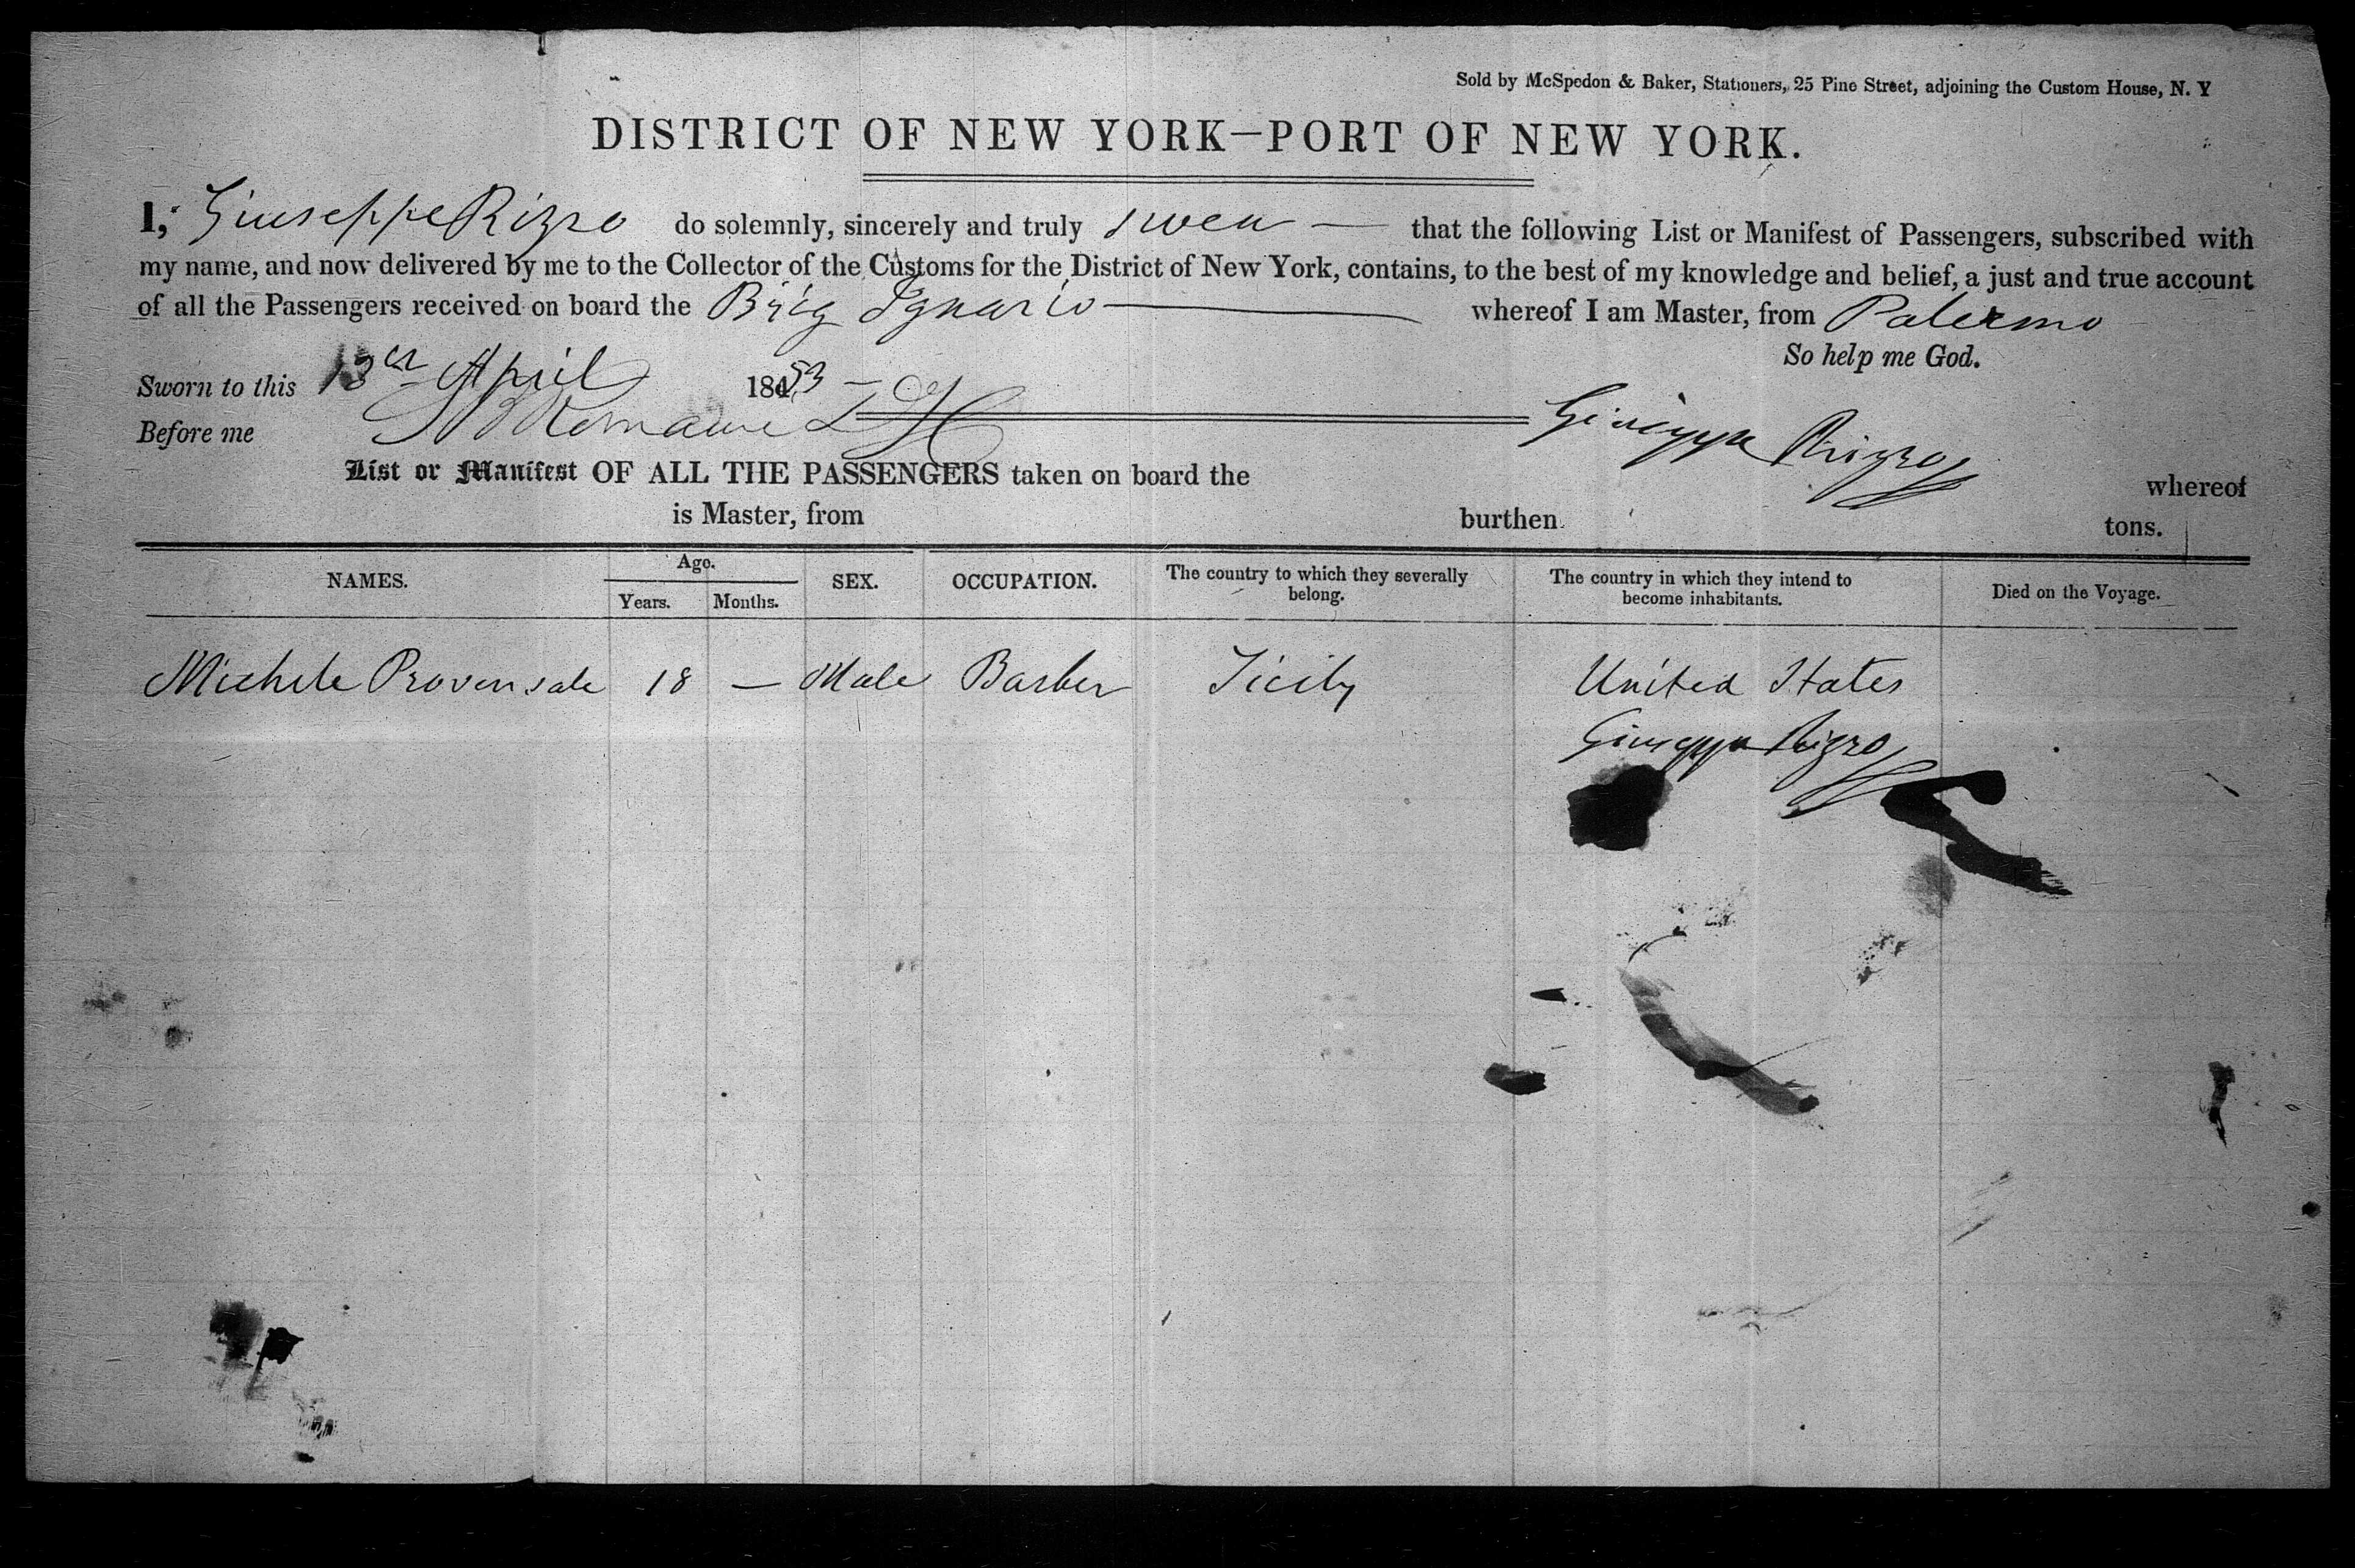 Sold by McSpedon & Baker, Stationers, 25 Pine Street, adjoining the Custom House, N. Y
DISTRICT OF NEW YORK—PORT OF NEW YORK.
I, Giuseppe Rizzo do solemnly, sincerely and truly swear — that the following List or Manifest of Passengers, subscribed with
my name, and now delivered by me to the Collector of the Customs for the District of New York, contains, to the best of my knowledge and belief, a just and true account
of all the Passengers received on board the Brig Ignazio whereof I am Master, from Palermo
So help me God.
Sworn to this 13th April 1853
Before me Romaine Giuseppe Rizzo
List or Manifest OF ALL THE PASSENGERS taken on board the whereof
is Master, from burthen tons.
NAMES. Age. Years. Months. SEX. OCCUPATION. The country to which they severally belong. The country in which they intend to become inhabitants. Died on the Voyage.
Michele Provensale 18 — Male Barber Sicily United States
Giuseppe Rizzo